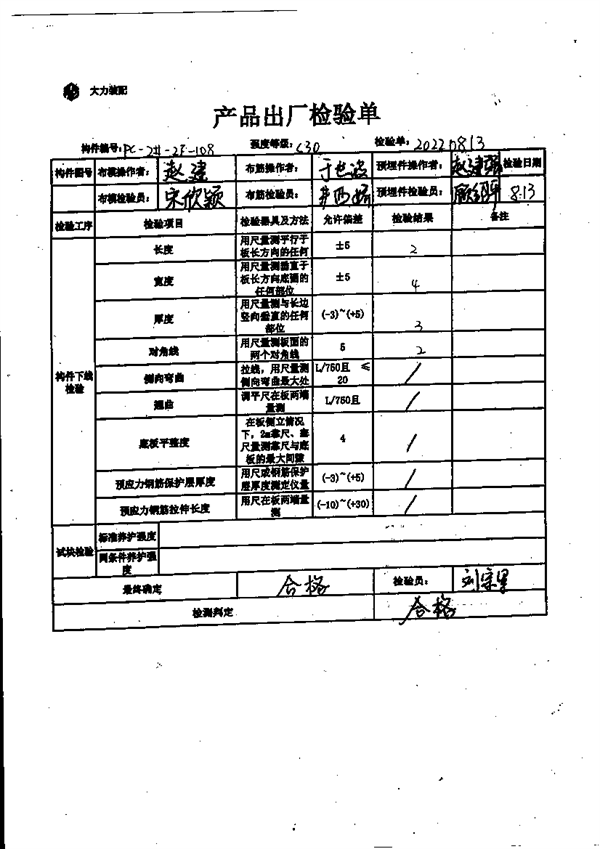 大力装配
产品出厂检验单
构件编号: PC-2#-2F-108 强度等级: C30 检验单: 20220813
构件图号 布模操作者: 赵建 布筋操作者: 预埋件操作者: 赵建强 检验日期
布模检验员: 宋欣颖 布筋检验员: 预埋件检验员: 8.13
检验工序 检验项目 检验器具及方法 允许偏差 检验结果 备注
构件下线检验
长度 用尺量测平行于板长方向的任何 ±5 2
宽度 用尺量测垂直于板长方向底面的任何部位 ±5 4
厚度 用尺量测与长边竖向垂直的任何部位 (-3)~(+5) 3
对角线 用尺量测板面的两个对角线 5 2
侧向弯曲 拉线,用尺量测侧向弯曲最大处 L/750且 ≤20 /
翘曲 调平尺在板两端量测 L/750且 /
底板平整度 在板侧立情况下,2m靠尺、塞尺量测靠尺与底板的最大间隙 4 /
预应力钢筋保护层厚度 用尺或钢筋保护层厚度测定仪量 (-3)~(+5) /
预应力钢筋拉伸长度 用尺在板两端量测 (-10)~(+30) /
试块检验 标准养护强度
同条件养护强度
最终确定 合格 检验员:
检测判定 合格